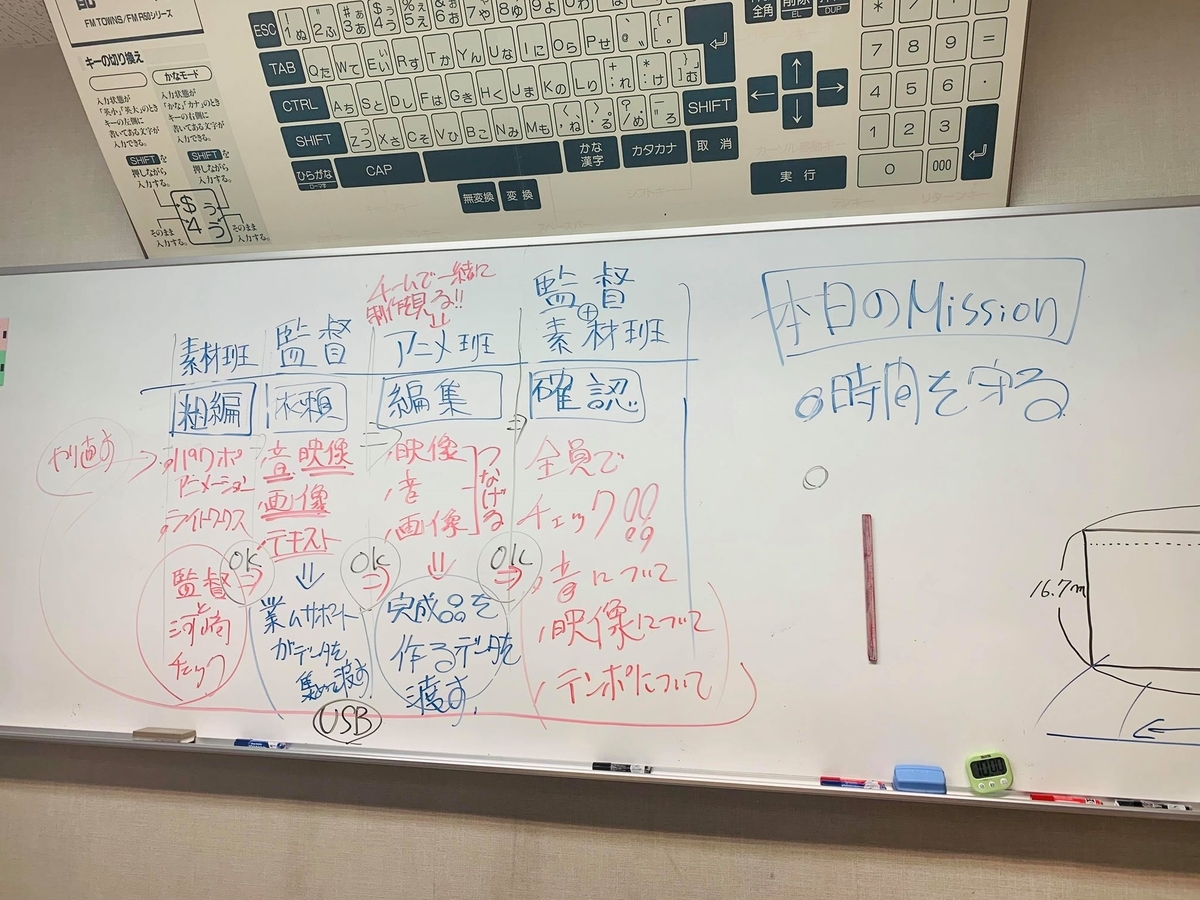 FM TOWNS/FM R50シリーズ
キーの切り換え
かなモード
入力状態が
「英小」「英大」のとき
キーの左側に
書いてある文字が
入力できる。
入力状態が
「かな」「カナ」のとき
キーの右側に
書いてある文字が
入力できる。
SHIFTを
押しながら
入力する。
SHIFTを
押しながら
入力する。
$ ぅ
4 う
そのまま
入力する。
そのまま
入力する。
ESC
TAB Qた Wて Eい Rす Tか Yん Uな Iに Oら Pせ
CTRL Aち Sと Dし Fは Gき Hく Jま Kの Lり
SHIFT Zつ Xさ Cそ Vひ Bこ Nみ Mも SHIFT
ひらがな CAP かな漢字 カタカナ 取消
無変換 変換
実行
全角
EL
DUP
← ↑ ↓ →
7 8 9 =
4 5 6 .
1 2 3
0 000
チームで一緒に
制作見る!!
素材班 監督 アニメ班 監督+素材班
粗編 依頼 編集 ⇒ 確認
やり直す
パワポ
アニメーション
ライトワークス
監督
と
河崎
チェック
OK
⇒
音 映像
画像
テキスト
⇓
業ムサポート
がデータを
集めて渡す。
USB
OK
⇒
映像
音
画像
つなげる
⇓
完成品を
作るデータを
渡す。
OK
⇒
全員で
チェック!!
音について
映像について
テンポについて
本日のMission
時間を守る
16.7m